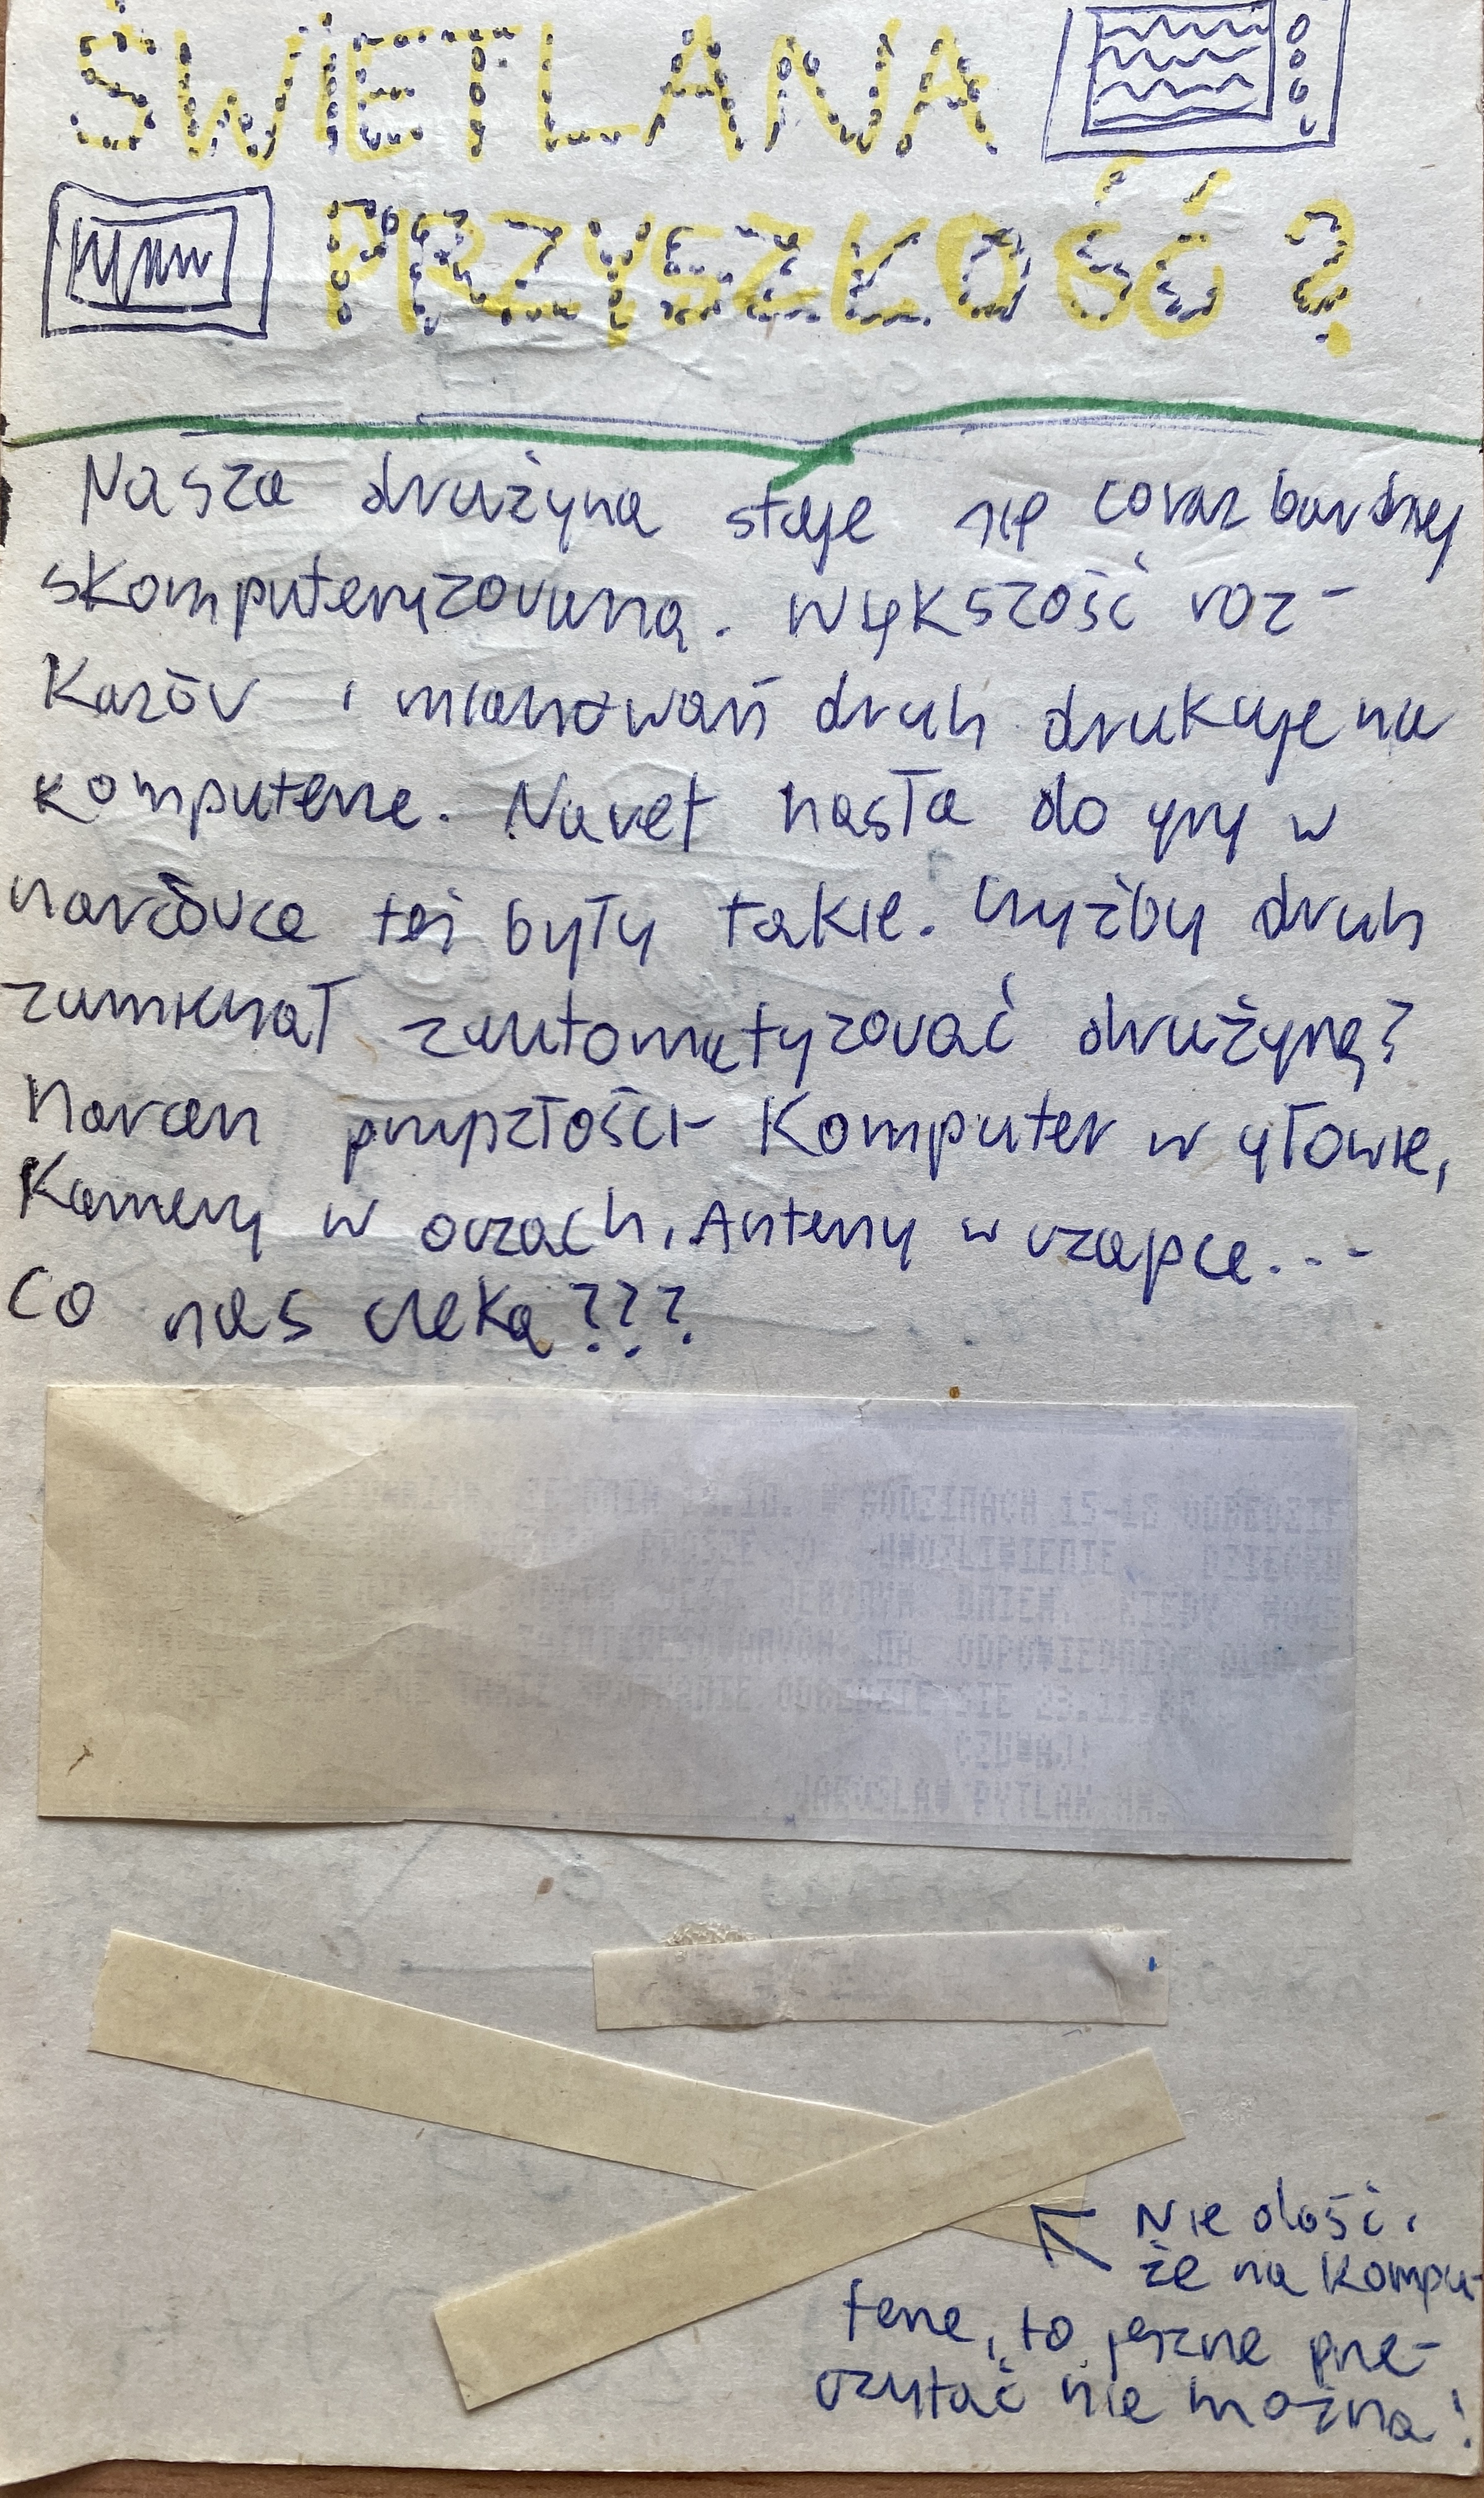 ŚWIETLANA
PRZYSZŁOŚĆ?
Nasza drużyna staje się coraz bardziej
skomputeryzowaną. Większość roz-
kazów i mianowań druh drukuje na
komputerze. Nawet hasła do gry w
harcówce też były takie. Czyżby druh
zamierzał zautomatyzować drużynę?
Harcerz przyszłości- Komputer w głowie,
Kamery w oczach, Anteny w czapce...
Co nas czeka???
DNIA 10. W GODZINACH 15-18 ODBĘDZIE
PROSZE O UMOZLIWIENIE
JEDYNYM DNIEM, KIEDY MOZE
ZAINTERESOWANYCH NA ODPOWIEDNIO
TAKIE SPOTKANIE ODBEDZIE SIE 23.11.
CZUWAJ!
JAROSLAW PYTLAK HM.
Nie dość,
że na kompu-
terze, to jeszcze prze-
czytać nie można!